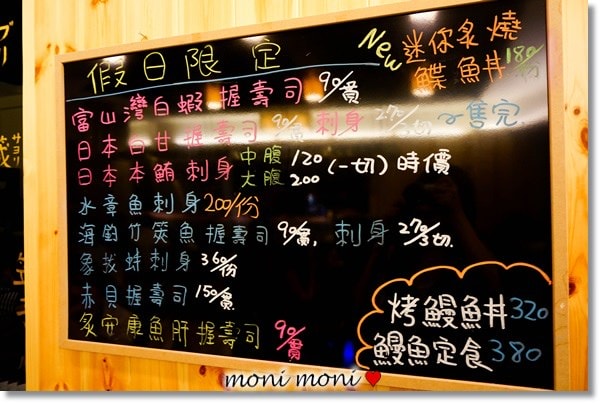 假日限定
New 迷你炙燒
鰈魚丼 180/份
富山灣白蝦握壽司 90/貫
日本白甘握壽司 90/貫 刺身 270/3切 ~售完
日本本鮪刺身 中腹 120 (一切) 時價
大腹 200
水章魚刺身 200/份
海釣竹筴魚握壽司 90/貫, 刺身 270/3切.
象拔蚌刺身 360/份
赤貝握壽司 150/貫.
炙安康魚肝握壽司 90/貫
烤鰻魚丼 320
鰻魚定食 380
moni moni